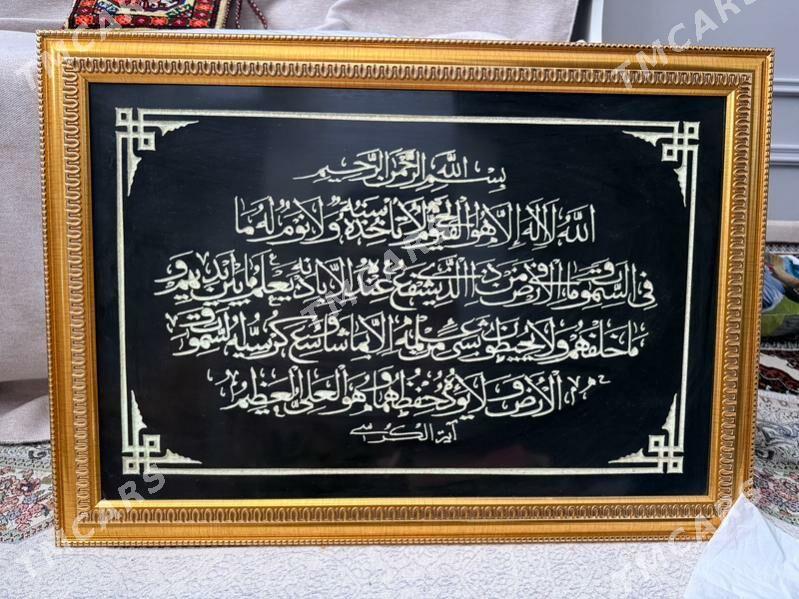 بسم الله الرحمن الرحيم
الله لا إله إلا هو الحي القيوم لا تأخذه سنة ولا نوم له ما
في السموات وما في الأرض من ذا الذي يشفع عنده إلا بإذنه يعلم ما بين أيديهم و
ما خلفهم ولا يحيطون بشيء من علمه إلا بما شاء وسع كرسيه السموات و
الأرض ولا يؤده حفظهما وهو العلي العظيم
آية الكرسي
TMCARS
TMCARS
TMCARS
TMCARS
TMCARS
TMCARS
TMCARS